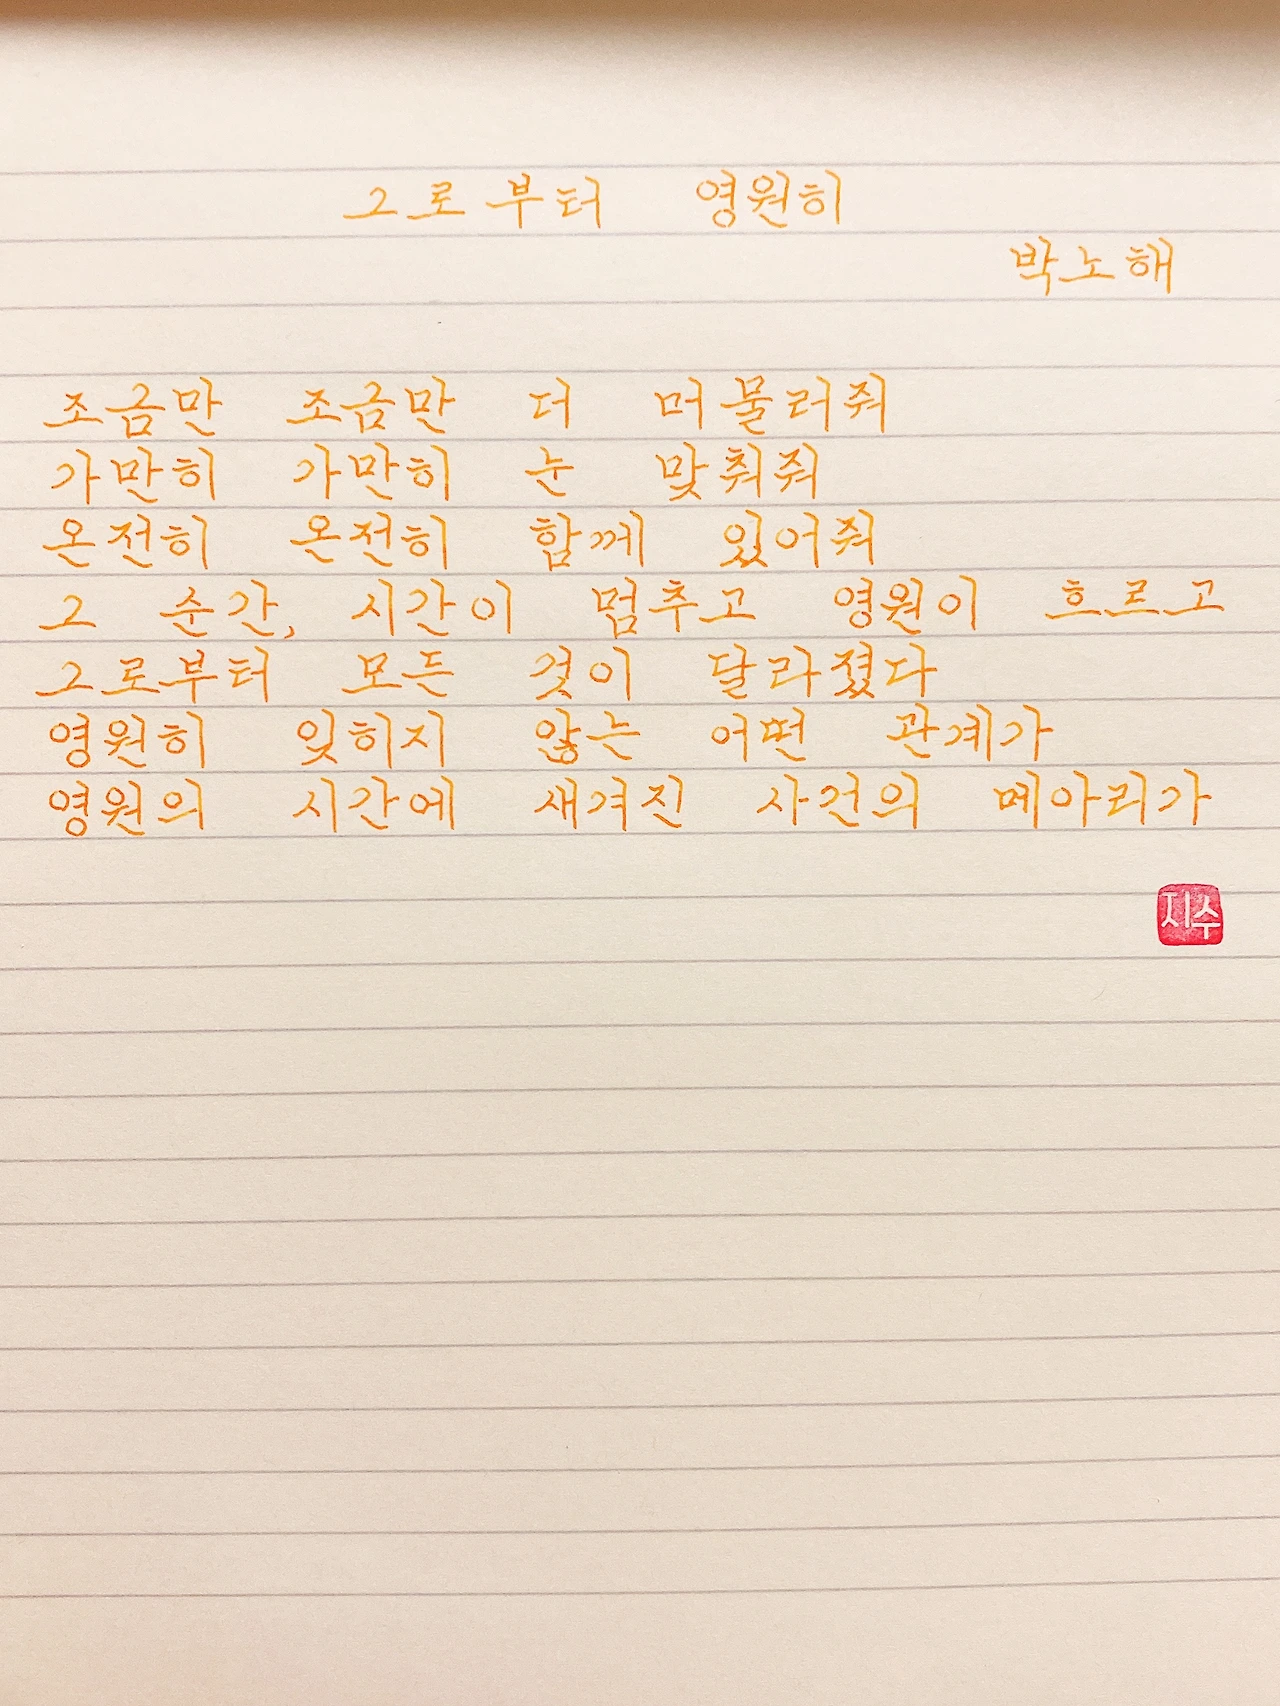 그로부터 영원히
박노해
조금만 조금만 더 머물러줘
가만히 가만히 눈 맞춰줘
온전히 온전히 함께 있어줘
그 순간, 시간이 멈추고 영원이 흐르고
그로부터 모든 것이 달라졌다
영원히 잊히지 않는 어떤 관계가
영원의 시간에 새겨진 사건의 메아리가
지수